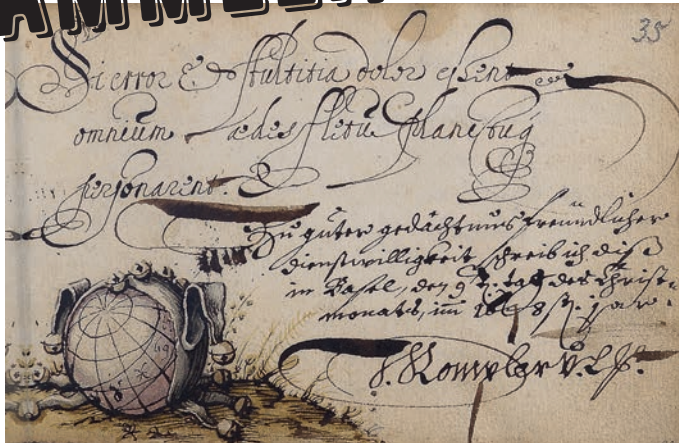 AMMLER
35
Si error & stultitia dolor essent
omnium ædes fletu planctuq
personarent.
Zu guter gedächtnus freündlicher
dienstwilligkeit, schreib ich diß
in Basel, den 9 t. tag des Christ-
monats, im 1648 st. jar.
J. Rompler v. L h.